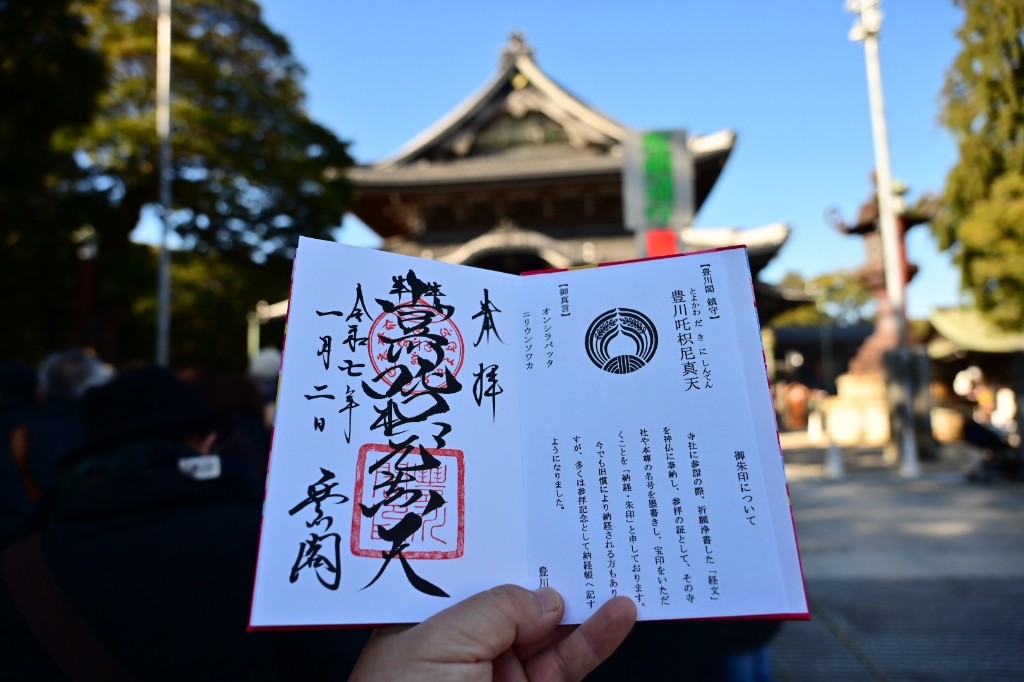 【豊川閣 鎮守】
とよかわ だ き に しんてん
豊川吒枳尼真天
【御真言】
オンシラバッタ
ニリウンソワカ
御朱印について
寺社に参詣の際、祈願浄書した「経文」
を神仏に奉納し、参拝の証として、その寺
社や本尊の名号を墨書きし、宝印をいただ
くことを「納経・朱印」と申しております。
今でも旧慣により納経される方もあり
すが、多くは参拝記念として納経帳へ記す
ようになりました。
豊川
奉拝
豊川吒枳尼真天
令和七年
一月二日
豊川閣